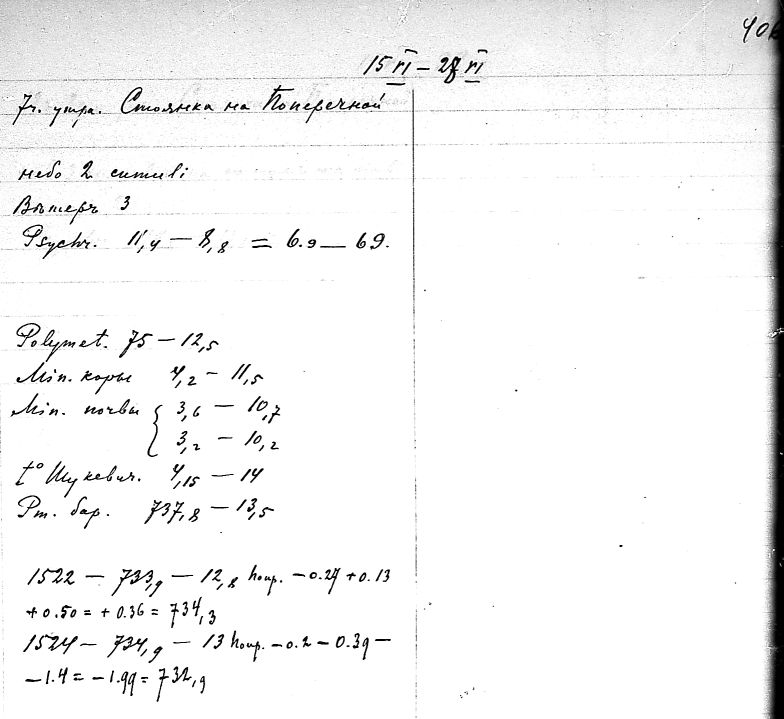 40
15 VI – 27 VI
7ч. утра. Стоянка на Поперечной
небо 2 cumuli
Вѣтеръ 3
Psychr. 11,4 — 8,8 = 6.9 — 69.
Polymet. 75 — 12,5
Min. коры 4,2 — 11,5
Min. почвы { 3,6 — 10,7
3,2 — 10,2
t° Шукевич. 4,15 — 14
Рт. бар. 737,8 — 13,5
1522 — 733,9 — 12,8 попр. — 0.27 + 0.13
+ 0.50 = + 0.36 = 734,3
1524 — 734,9 — 13 попр. — 0.2 — 0.39 —
— 1.4 = — 1.99 = 732,9